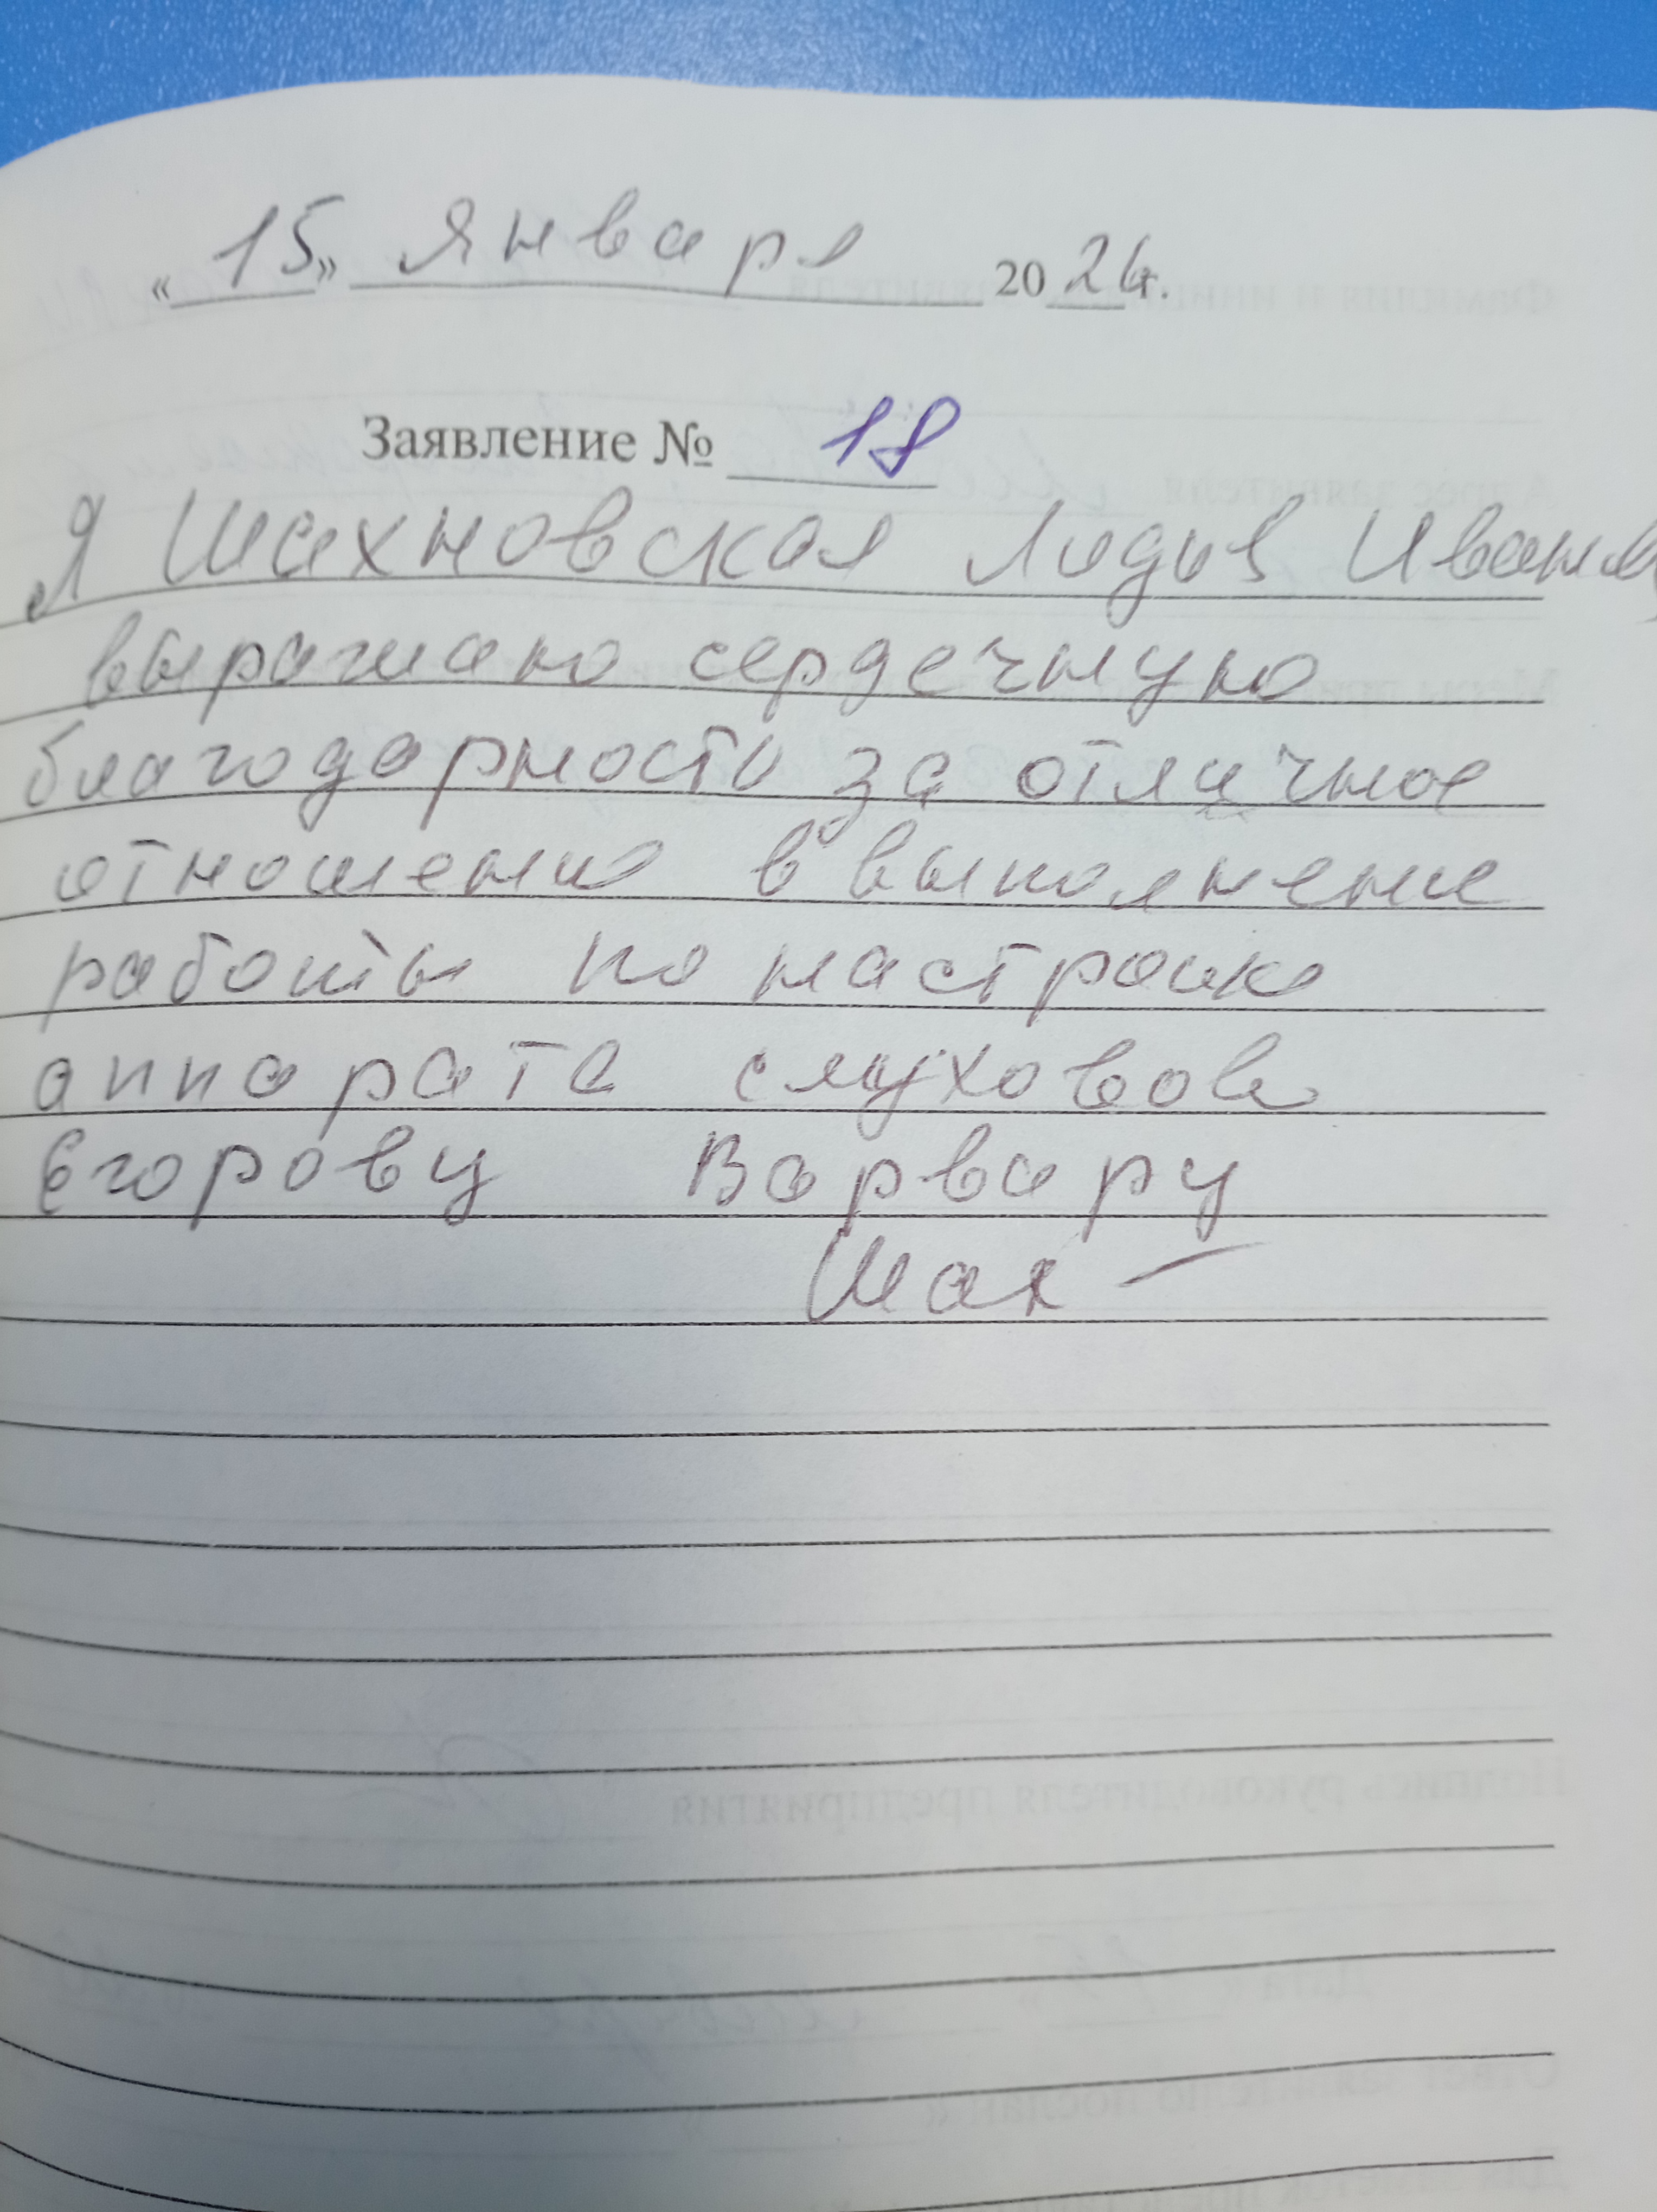 «15» января 2024г.
Заявление № 18
Я Шахновская Лидия Иван
выражаю сердечную
благодарность за отличное
отношению в выполнение
работы по настройке
аппарата слуховой
Егорову Варвару
Шах